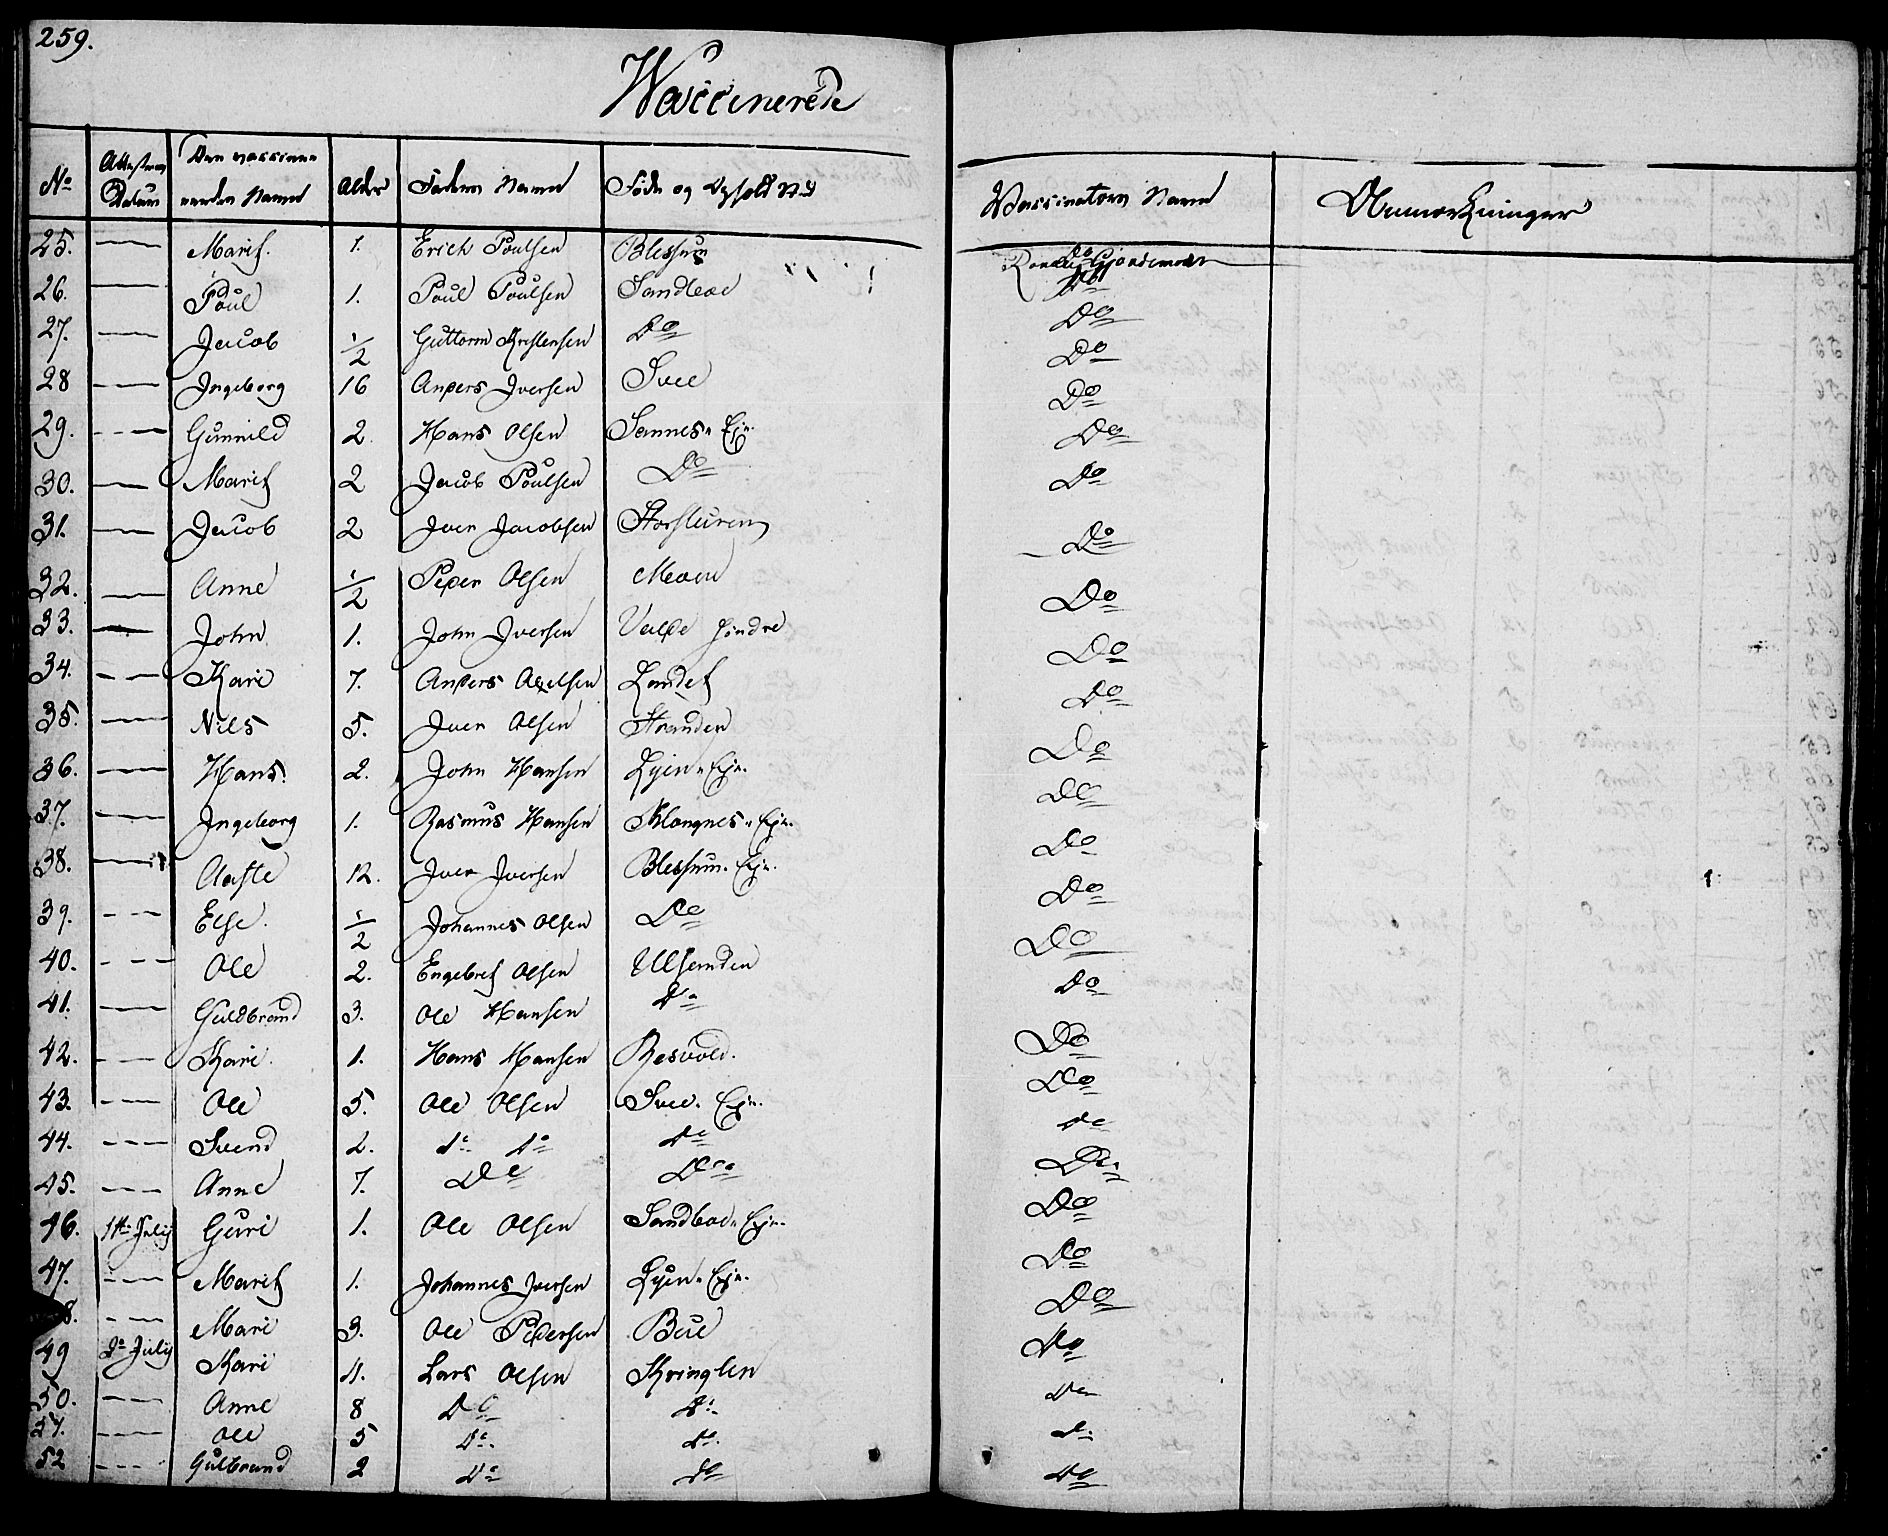 259.
Waccinerede
No Attestens Datum Den vaccineerendes Navne Alder Faderns Navne Føde og Opholds Sted Vaccinatorns Navne Anmærkninger
25. — Marit. 1. Erich Poulsen Blessum Do
26. — Poul 1. Poul Poulsen Sandboe Do
27. — Jacob 1/2 Guttorm Kristensen Do Do
28 — Ingeborg 16 Anders Iversen Svee Do
29. — Gunnild 2. Hans Olsen Sannes Ejn. Do
30. — Marit 2 Jacob Poulsen Do Do
31. — Jacob 2 Iver Jacobsen Do
32. — Anne 1/2 Peder Olsen Moen Do
33. — John 1. John Iversen Valde Do
34. — Kari 7. Anders Axelsen Landet Do
35. — Nils 5. Iver Olsen Stranden Do
36. — Hans. 2. John Hansen Lyen Ejn. Do
37. — Ingeborg 1. Rasmus Hansen Klongnes Ejn. Do
38. — Aaste 12. Iver Iversen Blessum Ejn. Do
39. — Else. 1/2 Johannes Olsen Do Do
40. — Ole 2. Engebret Olsen Ulsanden Do
41. — Guldbrand 3. Ole Hansen Do Do
42. — Kari. 1. Hans Hansen Resvold. Do
43. — Ole 5. Ole Olsen Svee. Ejn. Do
44. — Svend 2. do do do do
45. — Anne 7. Do Do Do
46. 1te July Guri 1. Ole Olsen Sandboe Ejn. Do
47. — Marit 1. Johannes Iversen Lyen Ejn. Do
8. — Mari 3. Ole Pedersen Bue Do
49 July Kari 11. Lars Olsen Kringlen Do
50. — Anne 8 Do do do
51. — Ole 5 do do do
52 — Gulbrand 2 do do do